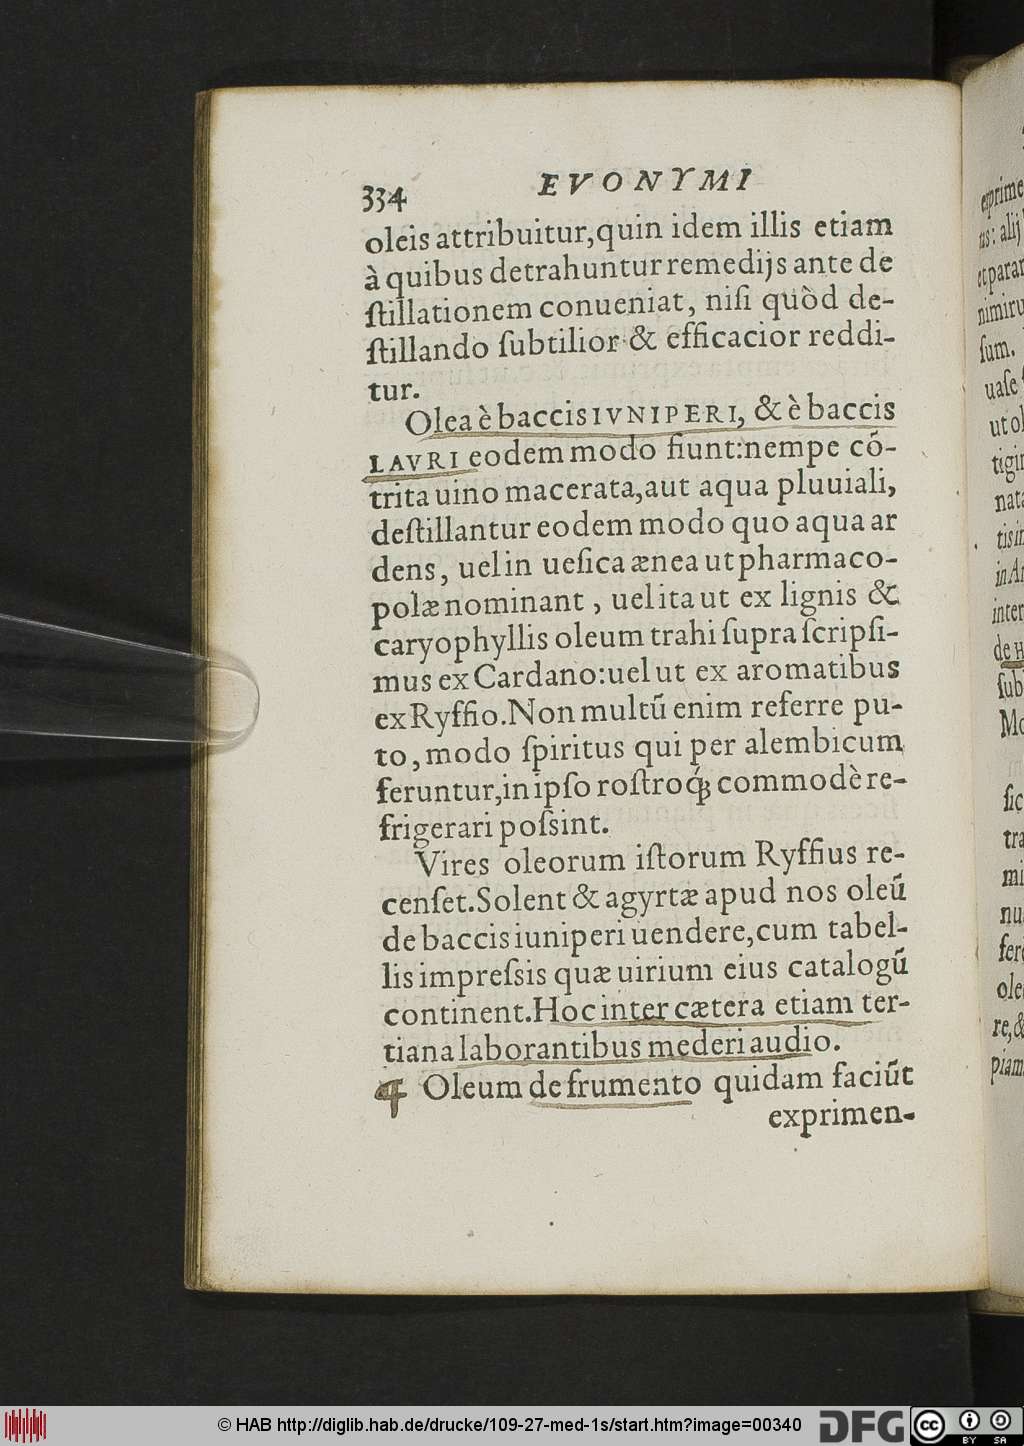 334 EVONYMI
oleis attribuitur, quin idem illis etiam
à quibus detrahuntur remedijs ante de
ſtillationem conueniat, niſi quòd de-
ſtillando ſubtilior & efficacior reddi-
tur.
Olea è baccis IVNIPERI, & è baccis
LAVRI eodem modo fiunt: nempe cō-
trita uino macerata, aut aqua pluuiali,
deſtillantur eodem modo quo aqua ar
dens, uel in ueſica ænea ut pharmaco-
polæ nominant, uel ita ut ex lignis &
caryophyllis oleum trahi ſupra ſcripſi-
mus ex Cardano: uel ut ex aromatibus
ex Ryffio. Non multū enim referre pu-
to, modo ſpiritus qui per alembicum
feruntur, in ipſo roſtroq́; commodè re-
frigerari poſsint.
Vires oleorum iſtorum Ryffius re-
cenſet. Solent & agyrtæ apud nos oleū
de baccis iuniperi uendere, cum tabel-
lis impreſsis quæ uirium eius catalogū
continent. Hoc inter cætera etiam ter-
tiana laborantibus mederi audio.
Oleum de frumento quidam faciūt
exprimen-
exprime
us: alij
et parar
nimiru
ſum.
uaſe
ut ol
tigin
nata
tis in
in Ar
inter
de H
ſub
Mo
ſic
tra
mi
nu
ferè
ole
re, &
piam
© HAB http://diglib.hab.de/drucke/109-27-med-1s/start.htm?image=00340 DFG cc BY SA